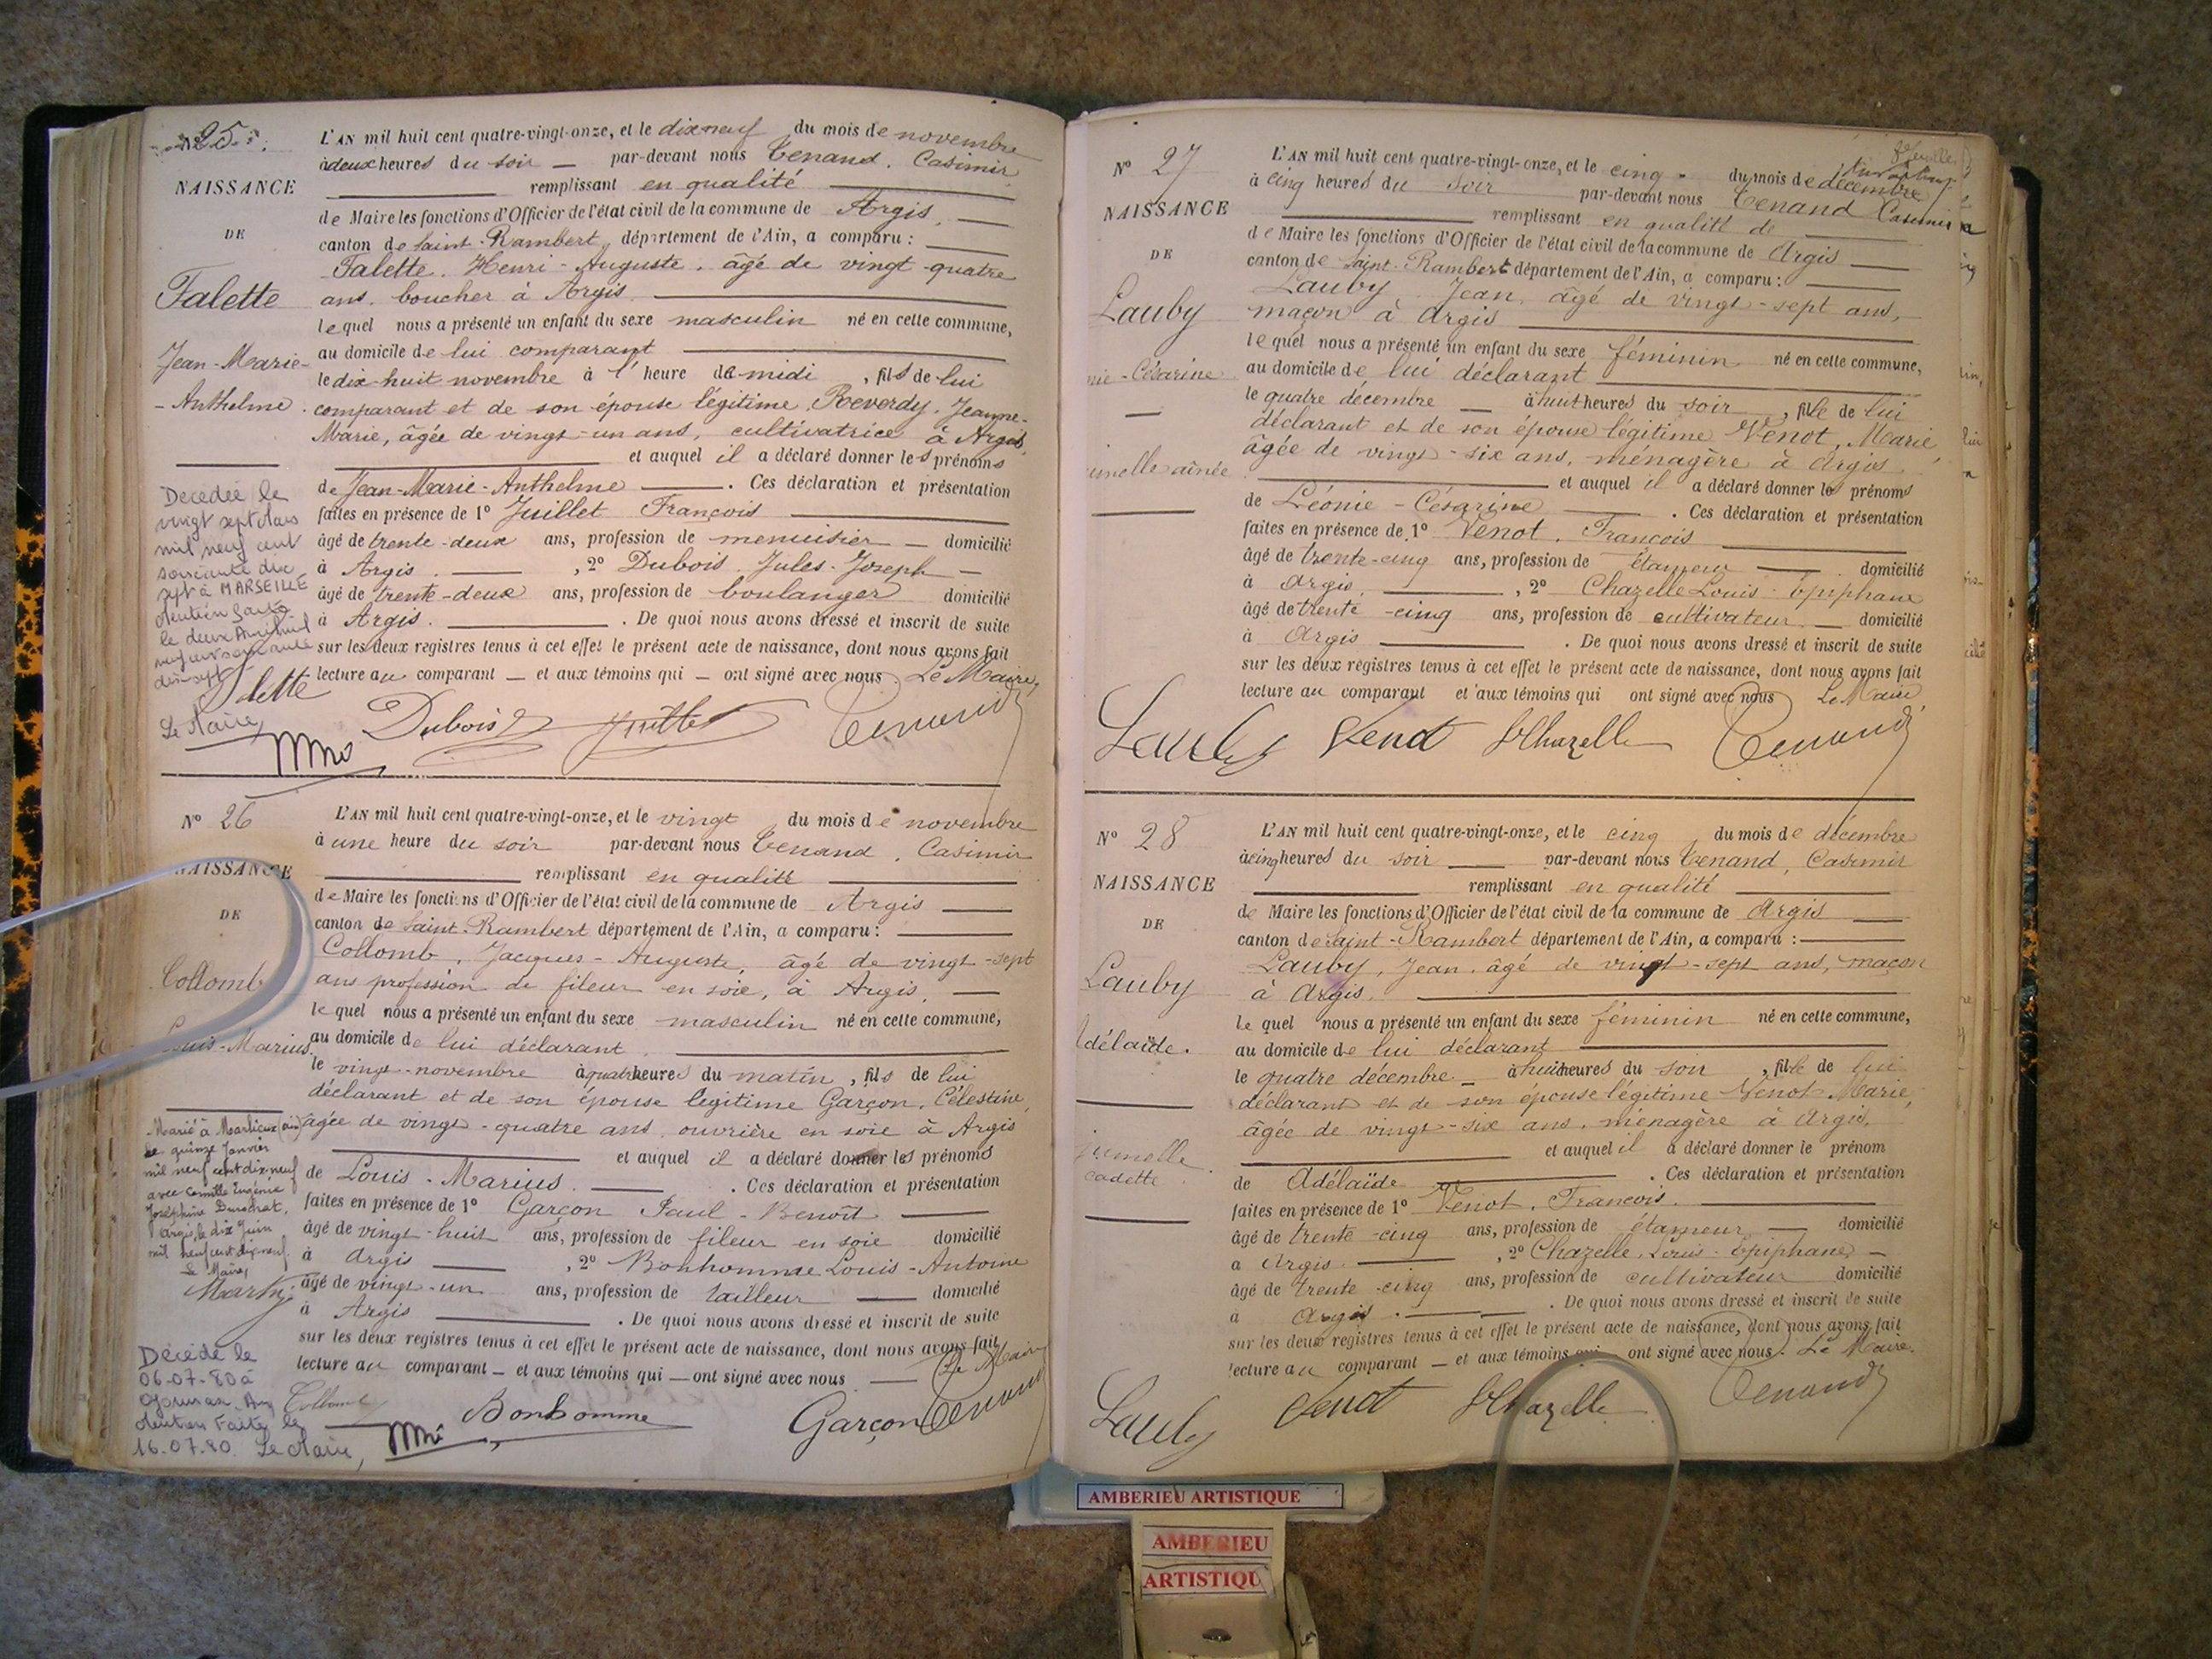 N° 25.
NAISSANCE
DE
Falette
Jean-Marie-
-Anthelme.
Décédée le
vingt sept Mars
mil neuf cent
soixante dix
sept à MARSEILLE
Mention faite
le deux Avril mil
neuf cent soixante
dix sept
Le Maire,
L'AN mil huit cent quatre-vingt-onze, et le dix neuf du mois de novembre
à deux heures du soir — par-devant nous Tenand, Casimir
remplissant en qualité
de Maire les fonctions d'Officier de l'état civil de la commune de Argis.
canton de Saint-Rambert, département de l'Ain, a comparu :
Falette, Henri-Auguste, âgé de vingt-quatre
ans, boucher à Argis.
lequel nous a présenté un enfant du sexe masculin né en cette commune,
au domicile de lui comparant
le dix-huit novembre à l'heure de midi, fils de lui
comparant et de son épouse légitime, Reverdy, Jeanne-
Marie, âgée de vingt-un ans, cultivatrice à Argis,
et auquel il a déclaré donner les prénoms
de Jean-Marie-Anthelme. Ces déclaration et présentation
faites en présence de 1° Juillet François
âgé de trente-deux ans, profession de menuisier — domicilié
à Argis, 2° Dubois, Jules-Joseph —
âgé de trente-deux ans, profession de boulanger domicilié
à Argis. De quoi nous avons dressé et inscrit de suite
sur les deux registres tenus à cet effet le présent acte de naissance, dont nous avons fait
lecture au comparant — et aux témoins qui — ont signé avec nous Le Maire,
Falette Dubois Juillet Tenand
N° 26
NAISSANCE
DE
Collomb
Louis-Marius.
Marié à Marlieux (Ain)
le quinze Janvier
mil neuf cent dix neuf
avec Camille Eugénie
Joséphine
Argis, le dix Juin
mil neuf cent dix neuf.
Le Maire,
Décédé le
06-07-80 à
Mention Faite le
16.07.80. Le Maire,
L'AN mil huit cent quatre-vingt-onze, et le vingt du mois de novembre
à une heure du soir par-devant nous Tenand, Casimir
remplissant en qualité
de Maire les fonctions d'Officier de l'état civil de la commune de Argis
canton de Saint-Rambert département de l'Ain, a comparu :
Collomb, Jacques-Auguste, âgé de vingt-sept
ans profession de fileur en soie, à Argis,
lequel nous a présenté un enfant du sexe masculin né en cette commune,
au domicile de lui déclarant.
le vingt-novembre à quatre heures du matin, fils de lui
déclarant et de son épouse légitime Garçon, Célestine,
âgée de vingt-quatre ans, ouvrière en soie à Argis
et auquel il a déclaré donner les prénoms
de Louis-Marius. Ces déclaration et présentation
faites en présence de 1° Garçon Paul-Benoît
âgé de vingt-huit ans, profession de fileur en soie domicilié
à Argis, 2° Bonhomme Louis-Antoine
âgé de vingt-un ans, profession de tailleur — domicilié
à Argis. De quoi nous avons dressé et inscrit de suite
sur les deux registres tenus à cet effet le présent acte de naissance, dont nous avons fait
lecture au comparant — et aux témoins qui — ont signé avec nous — Le Maire
Collomb Bonhomme Garçon Tenand
N° 27
NAISSANCE
DE
Lauby
nie-Césarine
umelle aînée
L'AN mil huit cent quatre-vingt-onze, et le cinq du mois de décembre
à cinq heures du soir par-devant nous Tenand Casimir
remplissant en qualité de
de Maire les fonctions d'Officier de l'état civil de la commune de Argis
canton de Saint-Rambert département de l'Ain, a comparu :
Lauby, Jean, âgé de vingt-sept ans,
maçon à Argis
lequel nous a présenté un enfant du sexe féminin né en cette commune,
au domicile de lui déclarant
le quatre décembre — à huit heures du soir, fille de lui
déclarant et de son épouse légitime Venot, Marie,
âgée de vingt-six ans, ménagère à Argis
et auquel il a déclaré donner les prénoms
de Léonie-Césarine. Ces déclaration et présentation
faites en présence de 1° Venot, François
âgé de trente-cinq ans, profession de étameur — domicilié
à Argis, 2° Chazelle Louis-Epiphane
âgé de trente-cinq ans, profession de cultivateur — domicilié
à Argis. De quoi nous avons dressé et inscrit de suite
sur les deux registres tenus à cet effet le présent acte de naissance, dont nous avons fait
lecture au comparant et aux témoins qui ont signé avec nous Le Maire
Lauby Venot Chazelle Tenand
N° 28
NAISSANCE
DE
Lauby
Adélaïde.
jumelle
cadette.
L'AN mil huit cent quatre-vingt-onze, et le cinq du mois de décembre
à cinq heures du soir — par-devant nous Tenand, Casimir
remplissant en qualité
de Maire les fonctions d'Officier de l'état civil de la commune de Argis
canton de Saint-Rambert département de l'Ain, a comparu :
Lauby, Jean, âgé de vingt-sept ans, maçon
à Argis.
lequel nous a présenté un enfant du sexe féminin né en cette commune,
au domicile de lui déclarant
le quatre décembre — à huit heures du soir, fille de lui
déclarant et de son épouse légitime Venot Marie,
âgée de vingt-six ans, ménagère à Argis,
et auquel il a déclaré donner le prénom
de Adélaïde. Ces déclaration et présentation
faites en présence de 1° Venot, François.
âgé de trente-cinq ans, profession de étameur — domicilié
à Argis, 2° Chazelle, Louis-Epiphane —
âgé de trente-cinq ans, profession de cultivateur domicilié
à Argis. De quoi nous avons dressé et inscrit de suite
sur les deux registres tenus à cet effet le présent acte de naissance, dont nous avons fait
lecture au comparant — et aux témoins qui — ont signé avec nous. Le Maire.
Lauby Venot Chazelle Tenand
AMBERIEU ARTISTIQUE
AMBERIEU
ARTISTIQU